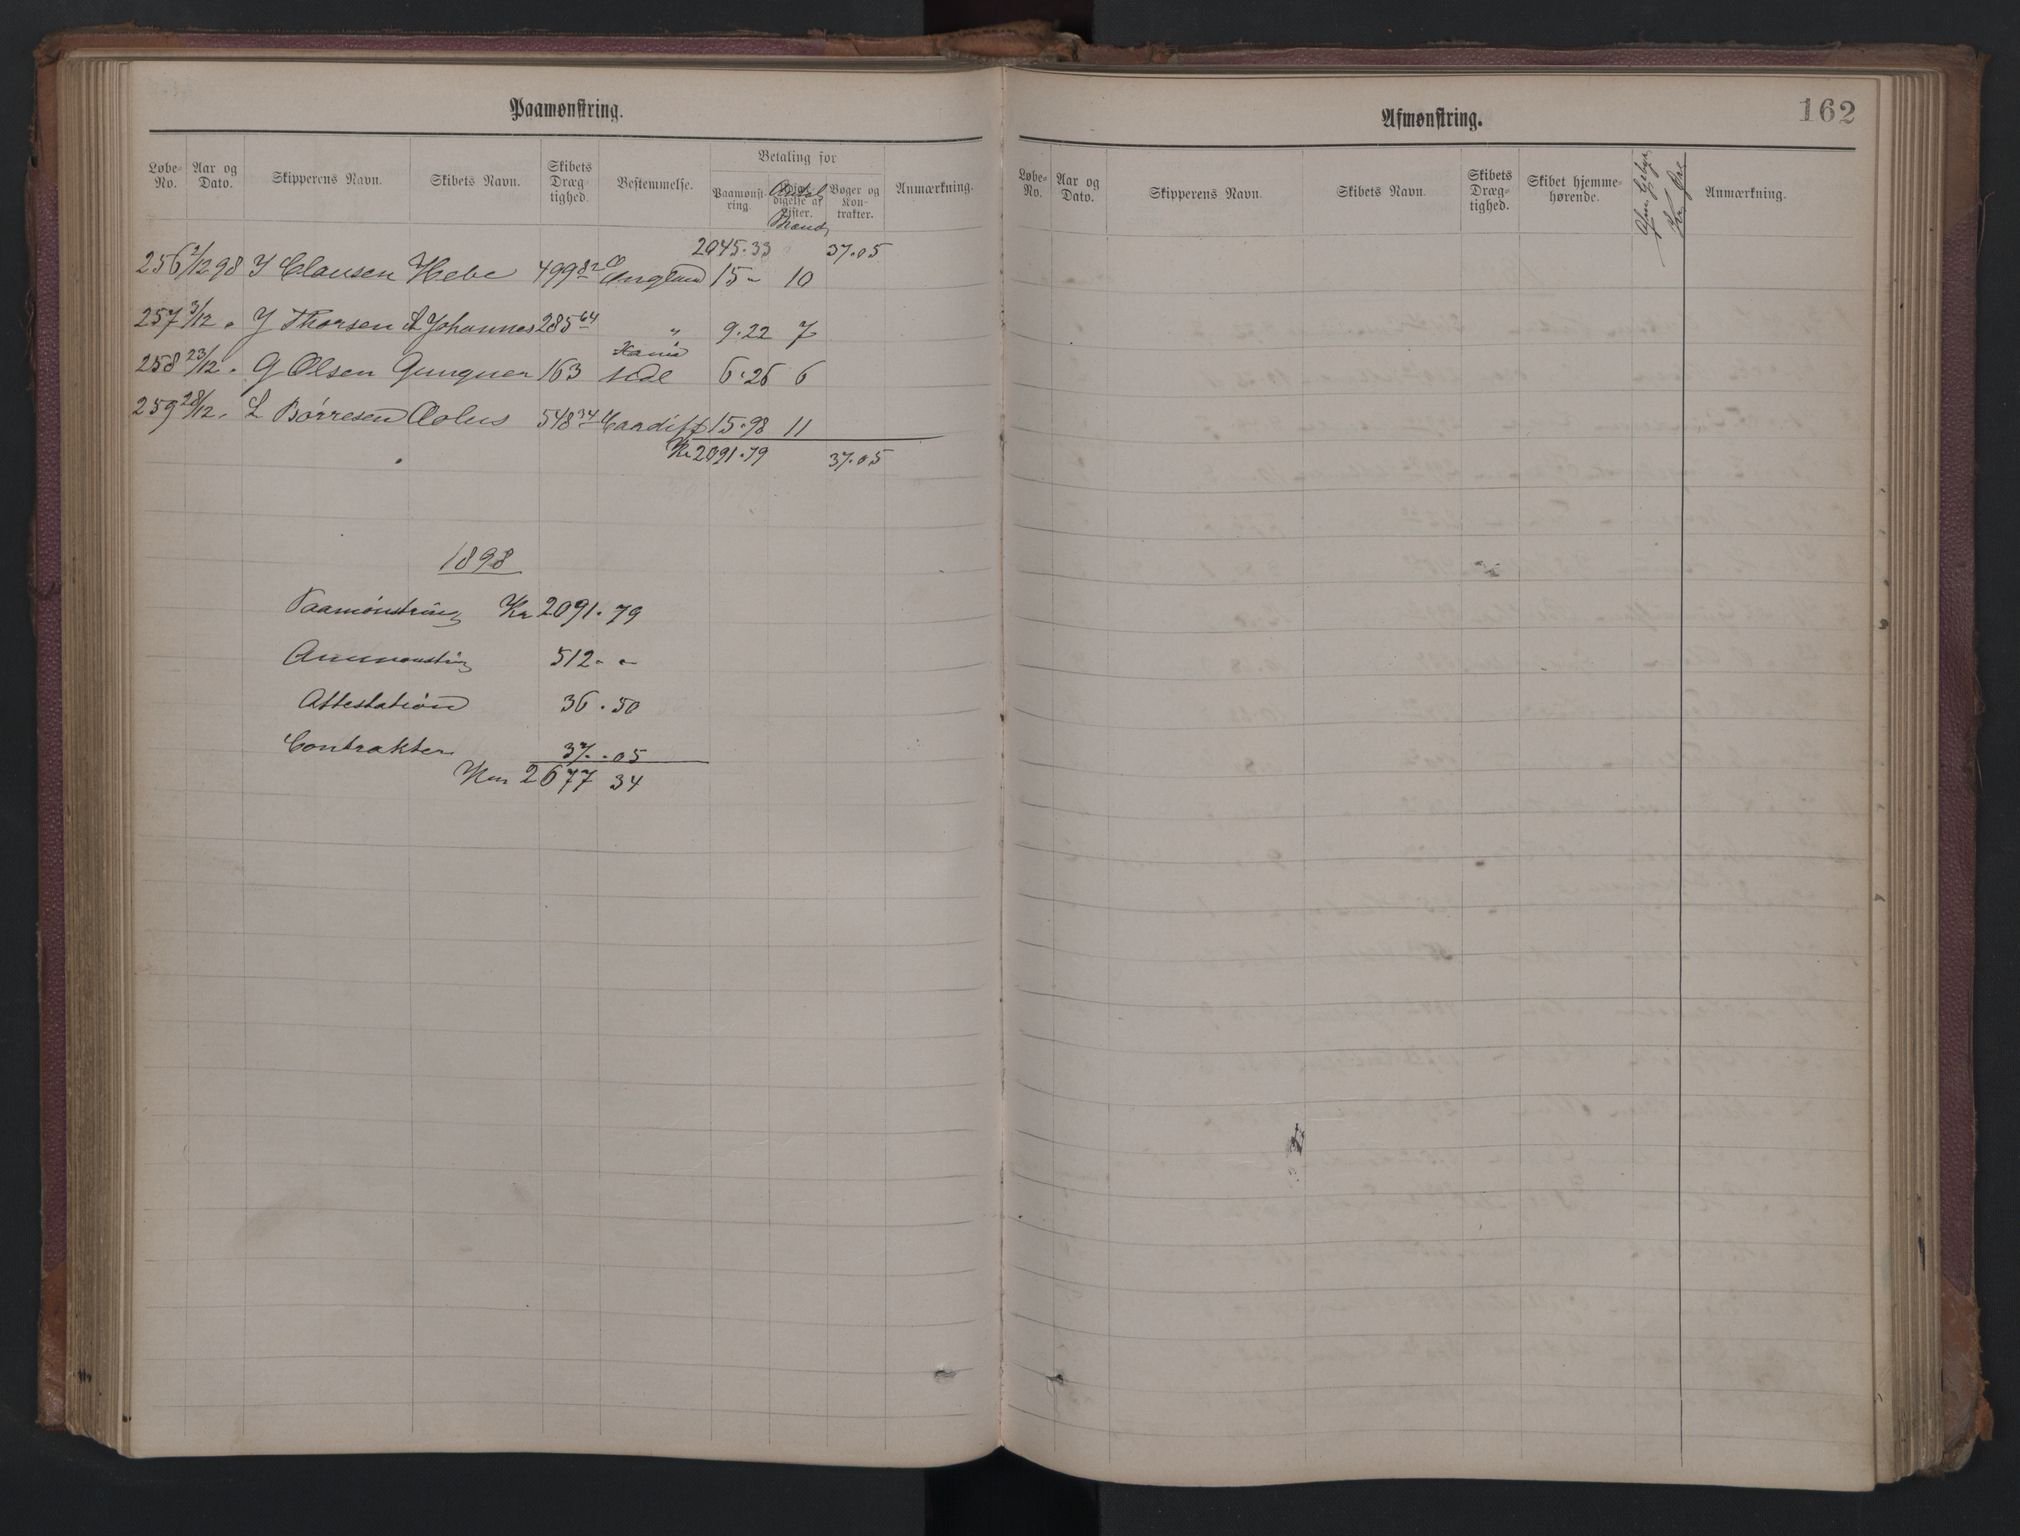 Paamønstring.
Løbe-No. Aar og Dato. Skipperens Navn. Skibets Navn. Skibets Dræg-tighed. Bestemmelse. Betaling for Paamønst-ring. digelse af Lister. Bøger og Kon-trakter. Anmærkning.
Antal Mand
2045.33 37.05
256 2/12 98 J Clausen Hebe 499 82 England 15 - 10
257 3/12 " J Thorsen St Johannes 285 64 " 9.22 7
258 23/12 " G Olsen Gungner 163 6.26 6
259 28/12 " L Børresen Æolus 548 34 Cardiff 15.98 11
Kr 2091.79 37.05
1898
Paamønstring Kr 2091.79
Anmønstring 512 - -
Attestation 36.50
Contrakter 37.05
Kr 2677 34
Afmønstring.
162
Løbe-No. Aar og Dato. Skipperens Navn. Skibets Navn. Skibets Dræg-tighed. Skibet hjemme-hørende. Anmærkning.